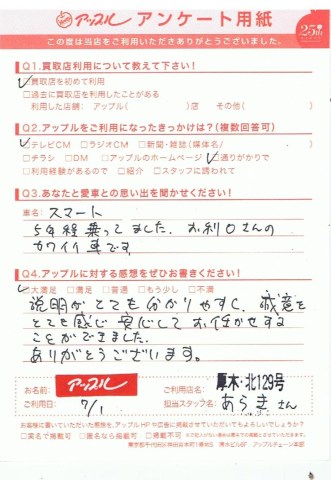 アップル アンケート用紙
25th
この度は当店をご利用いただきありがとうございました。
Q1.買取店利用について教えて下さい!
☑買取店を初めて利用
□過去に買取店を利用したことがある
利用した店舗: アップル( )店 その他( )
Q2.アップルをご利用になったきっかけは?(複数回答可)
☑テレビCM □ラジオCM □新聞・雑誌(媒体名/ )
□チラシ □DM □アップルのホームページ ☑通りがかりで
□利用経験があるので □紹介 □スタッフに誘われて
Q3.あなたと愛車との思い出を聞かせください!
車名: スマート
5年経乗ってました。お利口さんの
カワイイ車です
Q4.アップルに対する感想をぜひお書きください!
☑大満足 □満足 □普通 □もう少し □不満
説明がとても分かりやすく、誠意を
とても感じ安心してお任せする
ことができました。
ありがとうございます。
お名前: アップル ご利用店名: 厚木・北129号
ご利用日: 7/1 担当スタッフ名: あらき さん
お客様に書いていただいた感想を、アップルHPや広告に掲載させていただいてもよろしいでしょうか?
□実名で掲載可 □匿名なら掲載可 □掲載不可
東京都千代田区神田 アップルチェーン本部